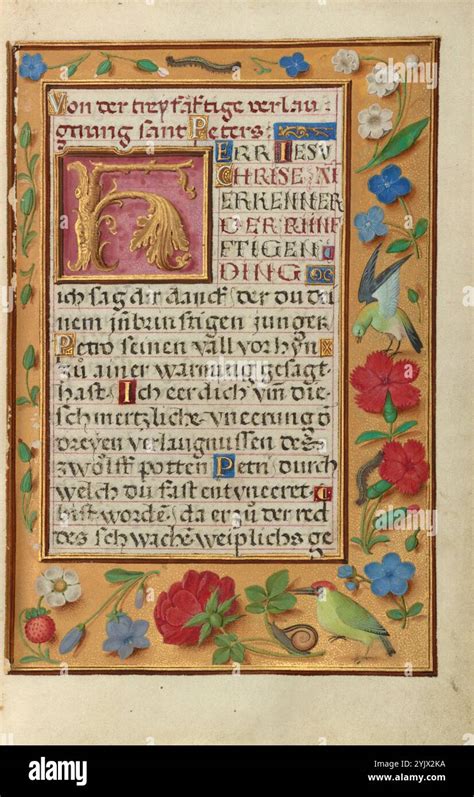 Von der treyfäftige verlau-
gnung sant Peters:
HERR IESV
CHRISE AI
ERKENNER
DER KÜNF
FTIGEN
DING
ich sag dir danck der du dei
nem jnbrünstigen junger
Petro seinen vall vor hyn
zu ainer warnung gesagt
hast. Ich eer dich vm die
schmertzliche vneerung d
dreyen verlangnussen des
zwolff potten Petri durch
welch du fast entvneeret
bist worde da er zu der red
des schwache weiplichs ge
alamy
Image ID: 2YJX2KA
www.alamy.com